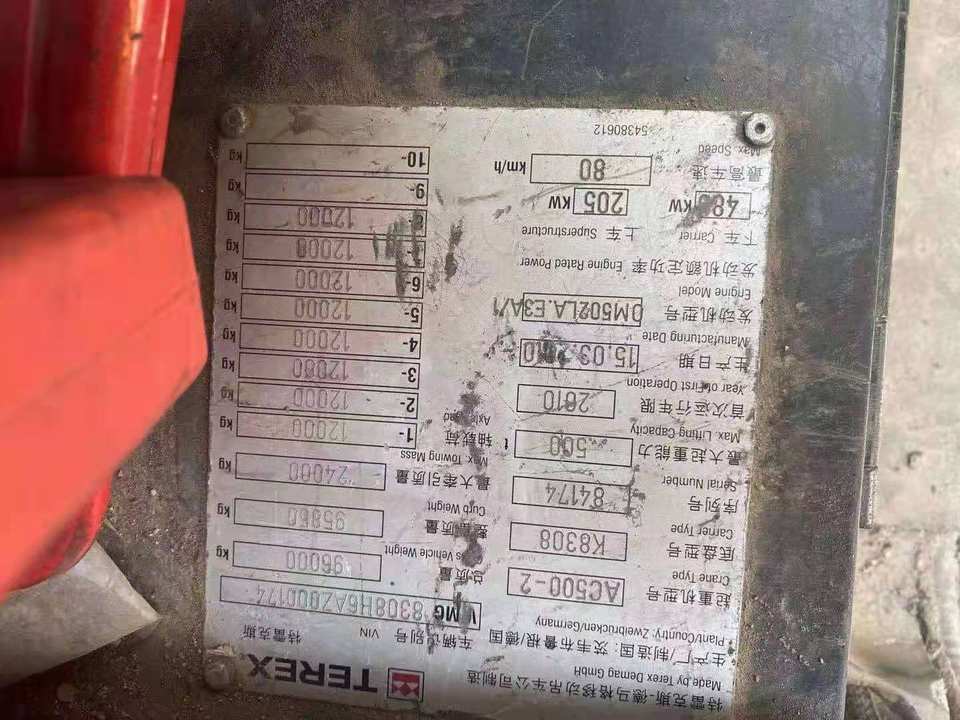 TEREX 特雷克斯
特雷克斯-德马格移动吊车公司制造
Made by Terex Demag GmbH
生产厂/制造国: 茨韦布鲁根,德国
Plant/Country: Zweibrucken/Germany
起重机型号
Crane Type
AC500-2
底盘型号
Carrier Type
K8308
序列号
Serial Number
84174
最大起重能力
Max. Lifting Capacity
500 t
首次运行年限
Year of First Operation
2010
生产日期
Manufacturing Date
15.03.
发动机型号
Engine Model
OM502LA.E3A/1
发动机额定功率 Engine Rated Power
下车 Carrier 上车 Superstructure
kW 205 kW
最高车速
Max. Speed
80 km/h
54380612
车辆识别号 VIN
8308H6AZ000174
总质量
Vehicle Weight
96000 kg
整备质量
Curb Weight
95860 kg
最大牵引质量
Max Towing Mass
24000 kg
轴载荷
Axle
1- 12000 kg
2- 12000 kg
3- 12000 kg
4- 12000 kg
5- 12000 kg
6- 12000 kg
12000 kg
8- 12000 kg
9- kg
10- kg